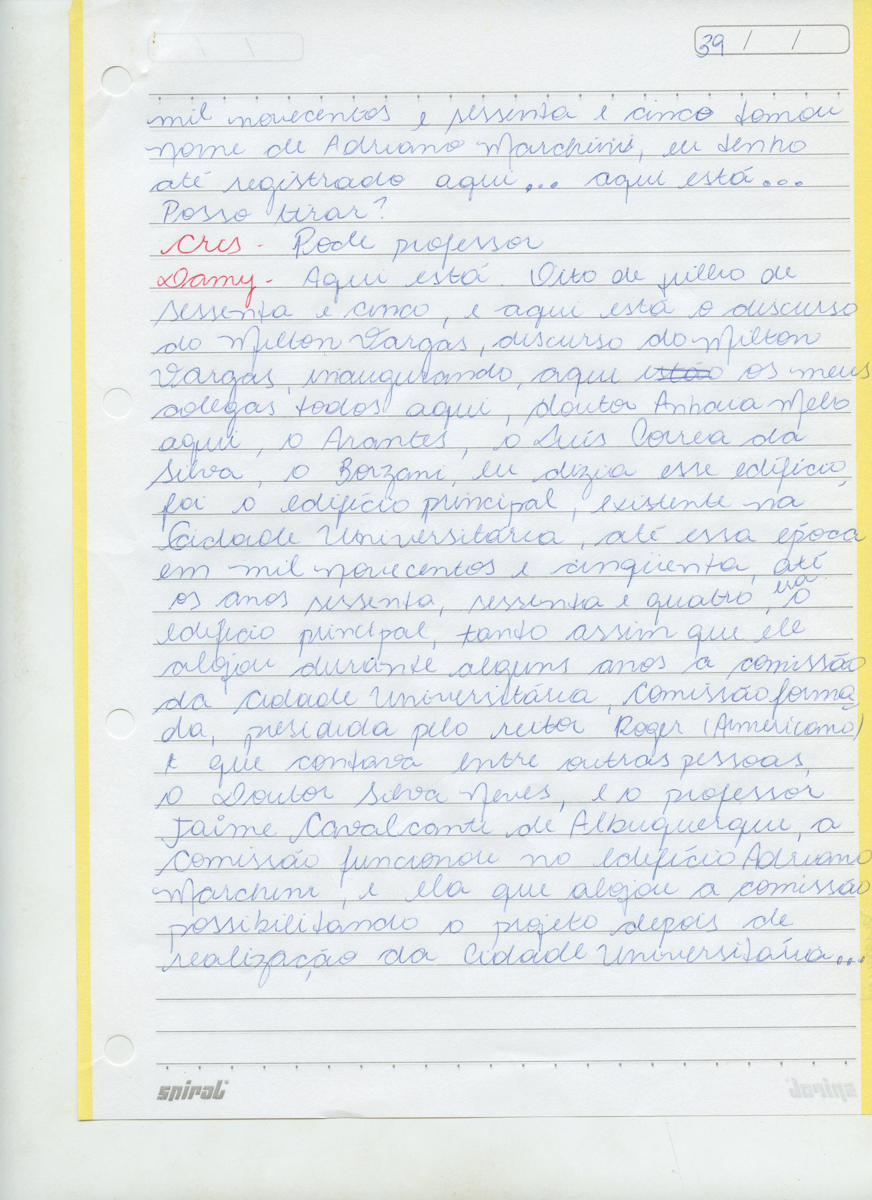 39 / /
mil novecentos e sessenta e cinco tomou
nome de Adriano Marchini, eu tenho
até registrado aqui... aqui está...
Posso tirar?
Cris - Pode professor
Damy - Aqui está. Oito de julho de
sessenta e cinco, e aqui está o discurso
do Milton Vargas, discurso do Milton
Vargas, inaugurando, aqui estão os meus
colegas todos aqui, doutor Anhaia Mello
aqui, o Arantes, o Luís Correa da
Silva, o Borzani, eu dizia esse edifício,
foi o edifício principal, existente na
Cidade Universitária, até essa época
em mil novecentos e cinqüenta, até
os anos sessenta, sessenta e quatro, era o
edifício principal, tanto assim que ele
alojou durante alguns anos a comissão
da Cidade Universitária, Comissão forma
da, presidida pelo reitor Roger (Americano)
e que contava entre outras pessoas,
o Doutor Silva Neves, e o professor
Jaime Cavalcanti de Albuquerque, a
Comissão funcionou no edifício Adriano
Marchini, e ela que alojou a comissão
possibilitando o projeto depois de
realização da Cidade Universitária...
spiral